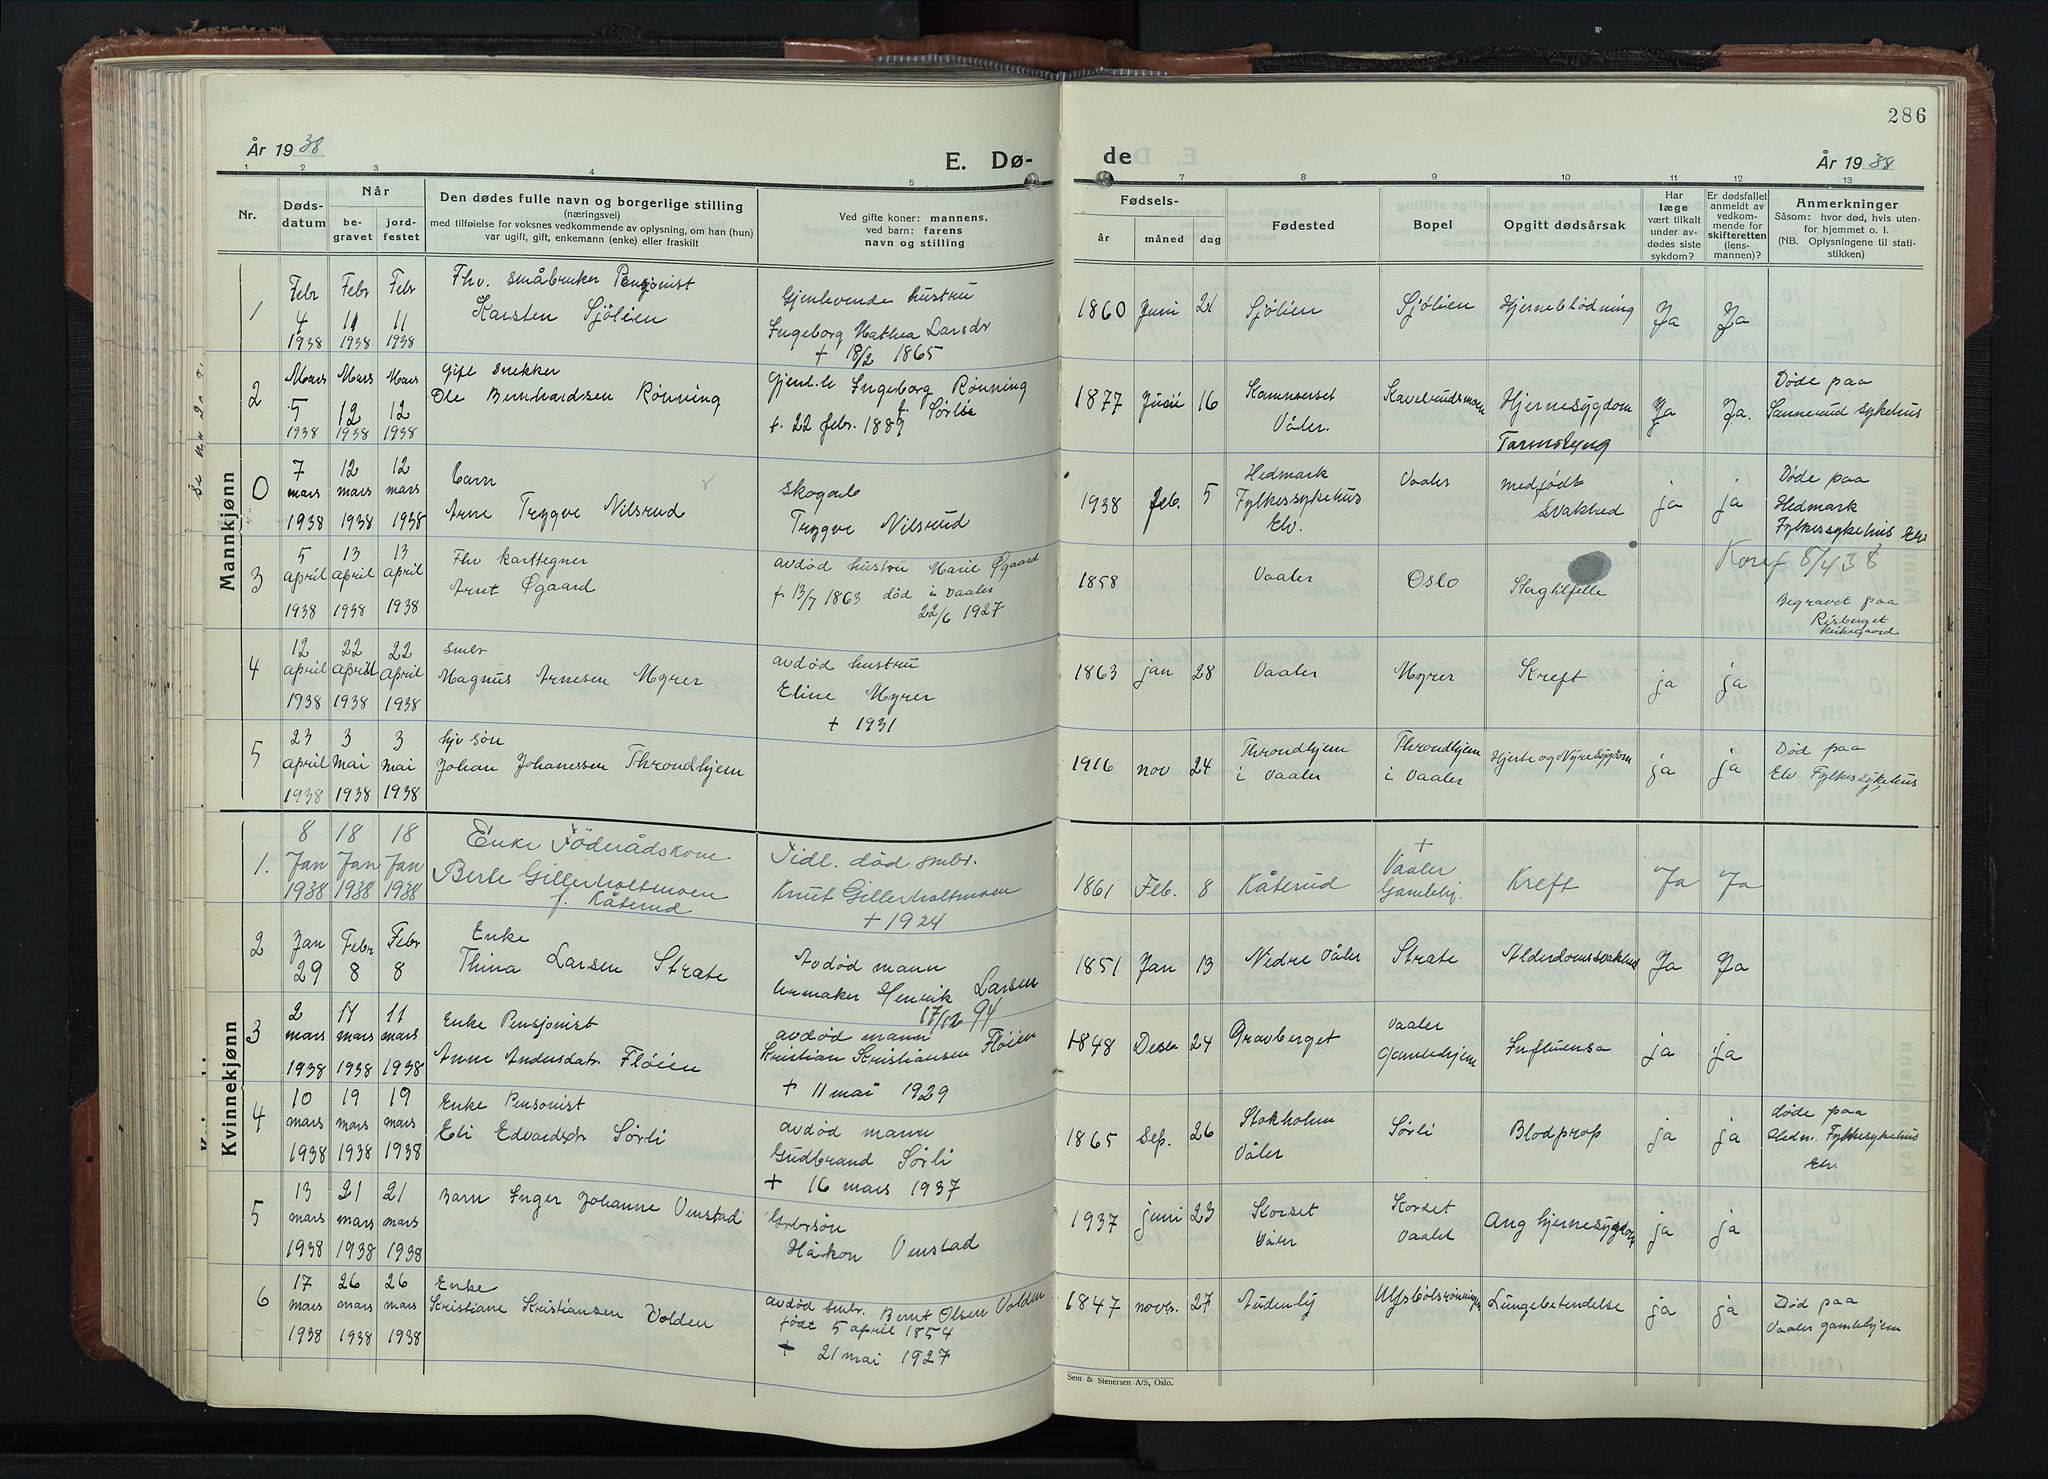 År 1938
E. Dø-
1 2 3 4 5
Nr.
Døds-
datum
Når
be-
gravet
jord-
festet
Den dødes fulle navn og borgerlige stilling
(næringsvei)
med tilføielse for voksnes vedkommende av oplysning, om han (hun)
var ugift, gift, enkemann (enke) eller fraskilt
Ved gifte koner: mannens,
ved barn: farens
navn og stilling
Mannkjønn
1
Febr 4 1938
Febr 11 1938
Febr 11 1938
Fhv. småbruker Pensjonist
Karsten Sjölien
Gjenlevende hustru
Ingeborg Mathea Larsdr
+ 18/2 1865
2
Mars 5 1938
Mars 12 1938
Mars 12 1938
Gift snekker
Ole Bernhardsen Rönning
Gjenl. Ingeborg Rønning
f. Sørlie
f. 22 febr. 1889
0
7 mars 1938
12 mars 1938
12 mars 1938
barn
Arne Trygve Nilsrud
skogarb
Trygve Nilsrud
3
5 april 1938
13 april 1938
13 april 1938
Fhv karttegner
Arnt Øgaard
avdød hustru Marie Øgaard
f 13/7 1863 død i Vaaler
22/6 1927
4
12 april 1938
22 april 1938
22 april 1938
smbr
Magnus Arnesen Myrer
avdød hustru
Eline Myrer
+ 1931
5
23 april 1938
3 mai 1938
3 mai 1938
hjv søn
Johan Johanessen Throndhjem
Kvinnekjønn
1.
8 Jan 1938
18 Jan 1938
18 Jan 1938
Enke Föderådskone
Berte Gillerholtmoen
f. Kåterud
Tidl. død smbr.
Knut Gillerholtmoen
+ 1924
2
Jan 29
Febr 8
Febr 8
Enke
Thina Larsen Strate
Avdød mann
Henrik Larsen
17/12 94
3
2 mars 1938
11 mars 1938
11 mars 1938
Enke Pensjonist
Anne Andersdatr Fløien
avdød mann
Kristian Kristiansen Fløien
+ 11 mai 1929
4
10 mars 1938
19 mars 1938
19 mars 1938
Enke Pensonist
Eli Edvardsdr Sørli
avdød mann
Gudbrand Sørli
+ 16 mars 1937
5
13 mars 1938
21 mars 1938
21 mars 1938
Barn Inger Johanne Venstad
Håkon Venstad
6
17 mars 1938
26 mars 1938
26 mars 1938
Enke
Kristiane Kristiansen Volden
avdød smbr. Bernt Olsen Volden
født 5 april 1854
+ 21 mai 1927
286
de
År 1938
7 8 9 10 11 12 13
Fødsels-
år måned dag
Fødested
Bopel
Opgitt dødsårsak
Har
læge
vært tilkalt
under av-
dødes siste
sykdom?
Er dødsfallet
anmeldt av
vedkom-
mende for
skifteretten
(lens-
mannen)?
Anmerkninger
Såsom: hvor død, hvis uten-
for hjemmet o. l.
(NB. Oplysningene til stati-
stikken)
1860 Juni 21 Sjölien Sjölien Hjerneblødning Ja Ja
1877 Juni 16
Våler.
Hjernesygdom
Tarmslyng
Ja Ja.
Døde paa
Sannerud sykehus
1938 feb. 5
Hedmark
Fylkessykehus
Elv.
Vaaler
medfødt
svakhed
ja ja
Døde paa
Hedmark
Fylkessykehus Elv
1858 Vaaler Oslo Slagtilfelle
Begravet paa
Risberget
Kirkegaard
1863 jan 28 Vaaler Myrer Kreft ja ja
1916 nov 24
Throndhjem
i Vaaler
Throndhjem
i Vaaler
Hjerte og Nyresygdom
ja ja
Død paa
Elv Fylkessykehus
1861 Feb. 8 Kåterud
+
Vaaler
Gamlehj.
Kreft Ja Ja
1851 Jan 13 Nedre Våler Strate Alderdomssvakhet Ja Ja
1848 Desbr 24 Gravberget
Vaaler
Gamlehjem
Influensa ja ja
1865 Sep. 26
Stokholm
Våler
Sørli Blodprop ja ja
døde paa
Hedm. Fylkesykehus
Elv.
1937 juni 23
Korset
Våler
Korset
Vaaler
Ang hjernesygdom
ja ja
1847 novr. 27 Audenby Lungebetendelse ja ja
Død paa
Vaaler gamlehjem
Sem & Stenersen A/S, Oslo.